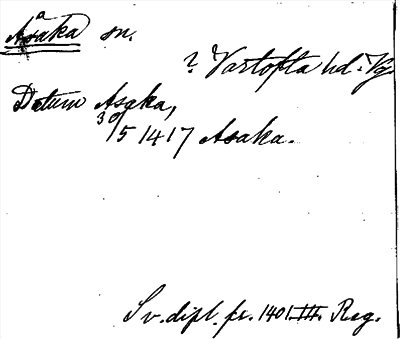 Asaka sn.
? Vartofta hd. Vg.
Datum Asaka,
30/5 1417 Asaka.
Sv. dipl. fr. 1401. III. Reg.